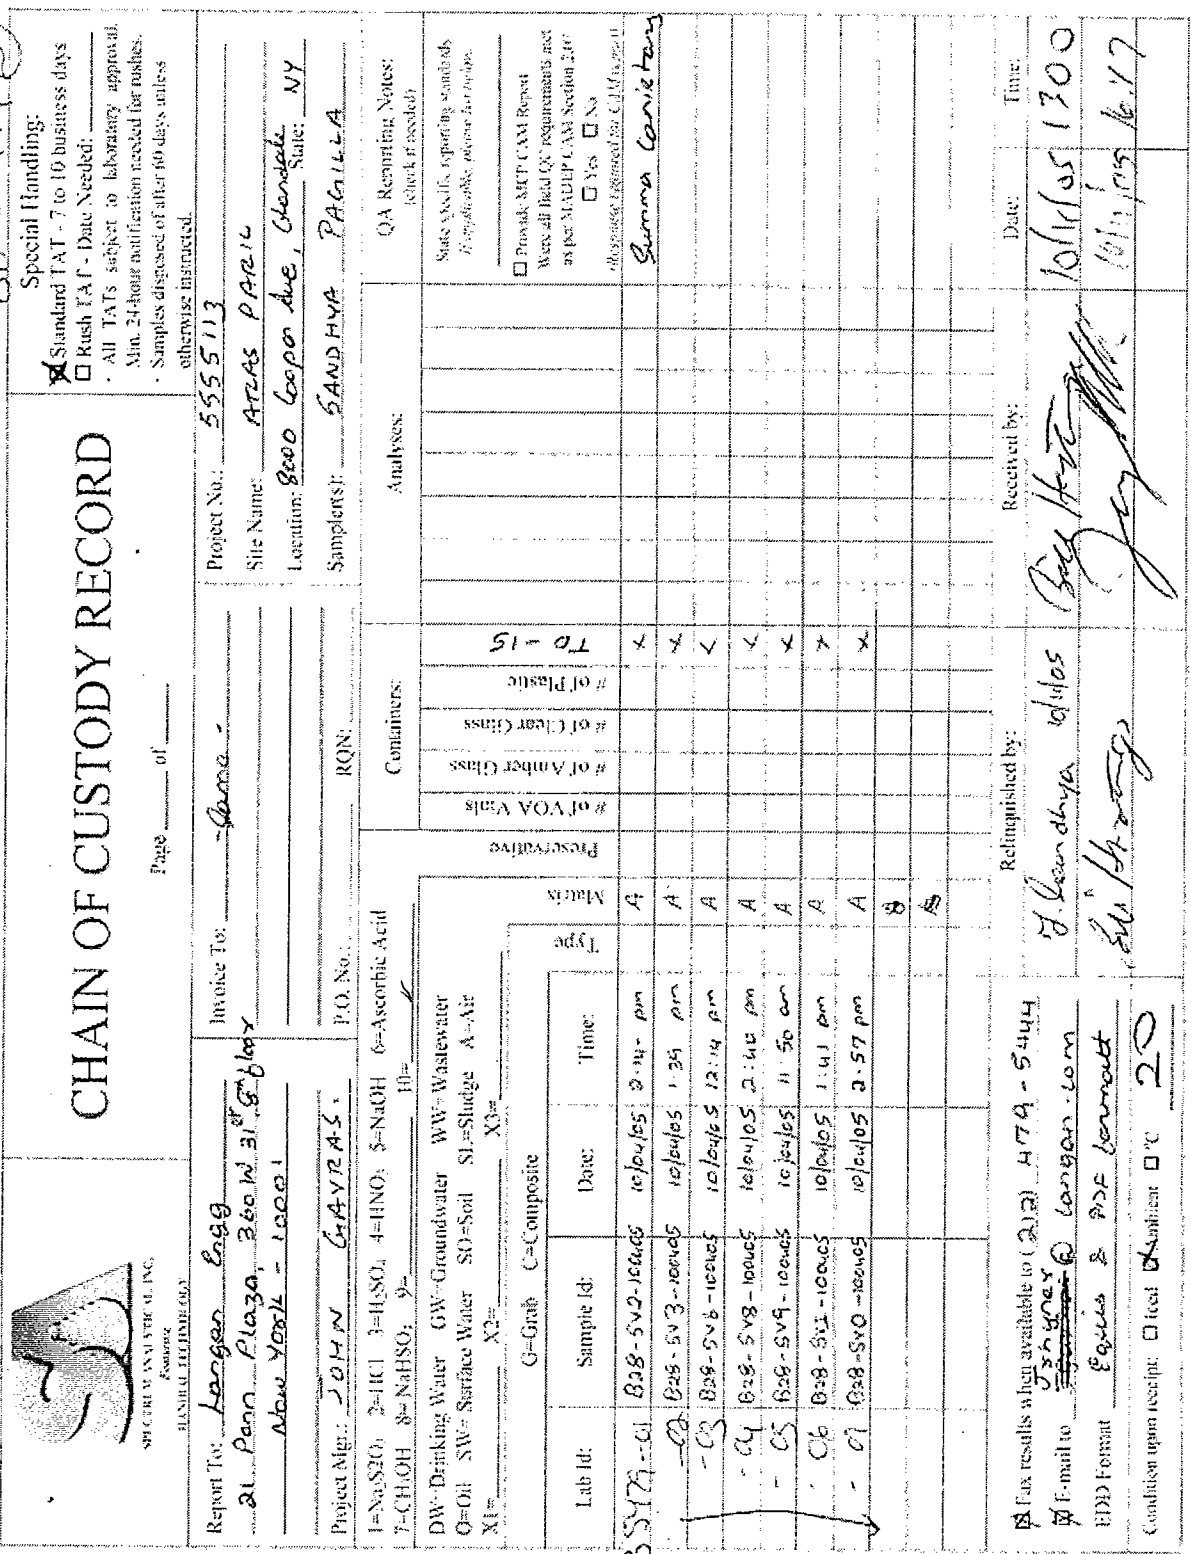 CHAIN OF CUSTODY RECORD
Page ____ of ____
Special Handling:
Standard TAT - 7 to 10 business days
Rush TAT - Date Needed:
· All TATs subject to laboratory approval.
Min. 24-hour notification needed for rushes.
· Samples disposed of after 60 days unless
otherwise instructed.
SPECTRUM ANALYTICAL, INC.
Featuring
HANIBAL TECHNOLOGY
Report To: Langan Engg
21 Penn Plaza, 360 W 31st 8th floor
New York - 10001
Project Mgr.: JOHN GAVRAS.
Invoice To: - Same -
P.O. No.: RQN:
Project No.: 5555113
Site Name: ATLAS PARK
Location: 8000 Cooper Ave, Glendale State: NY
Sampler(s): SANDHYA PAGILLA
1=Na2S2O3 2=HCl 3=H2SO4 4=HNO3 5=NaOH 6=Ascorbic Acid
7=CH3OH 8=NaHSO4 9= 10=
DW=Drinking Water GW=Groundwater WW=Wastewater
O=Oil SW= Surface Water SO=Soil SL=Sludge A=Air
X1= X2= X3=
G=Grab C=Composite
Containers:
Analyses:
QA Reporting Notes:
(check if needed)
State specific reporting standards
If applicable, please list below
Provide MCP CAM Report
Were all field QC requirements met
as per MADEP CAM Section 2.0?
Yes No
Lab Id: Sample Id: Date: Time: Type Matrix Preservative # of VOA Vials # of Amber Glass # of Clear Glass # of Plastic TO-15
-01 B28-SV2-100405 10/04/05 2:14 pm A X Summa Canisters
-02 B28-SV3-100405 10/04/05 1:39 pm A X
-03 B28-SV6-100405 10/04/05 12:14 pm A X
-04 B28-SV8-100405 10/04/05 2:40 pm A X
-05 B28-SV9-100405 10/04/05 11:50 am A X
-06 10/04/05 1:41 pm A X
-07 10/04/05 2:57 pm A X
Fax results when available to (212) 479-5444
E-mail to @ Langan.com
EDD Format Equis & PDF
Condition upon receipt: Iced Ambient °C 20
Relinquished by: Received by: Date: Time:
10/11/05 10/11/05 1300
10/11/05 16:47